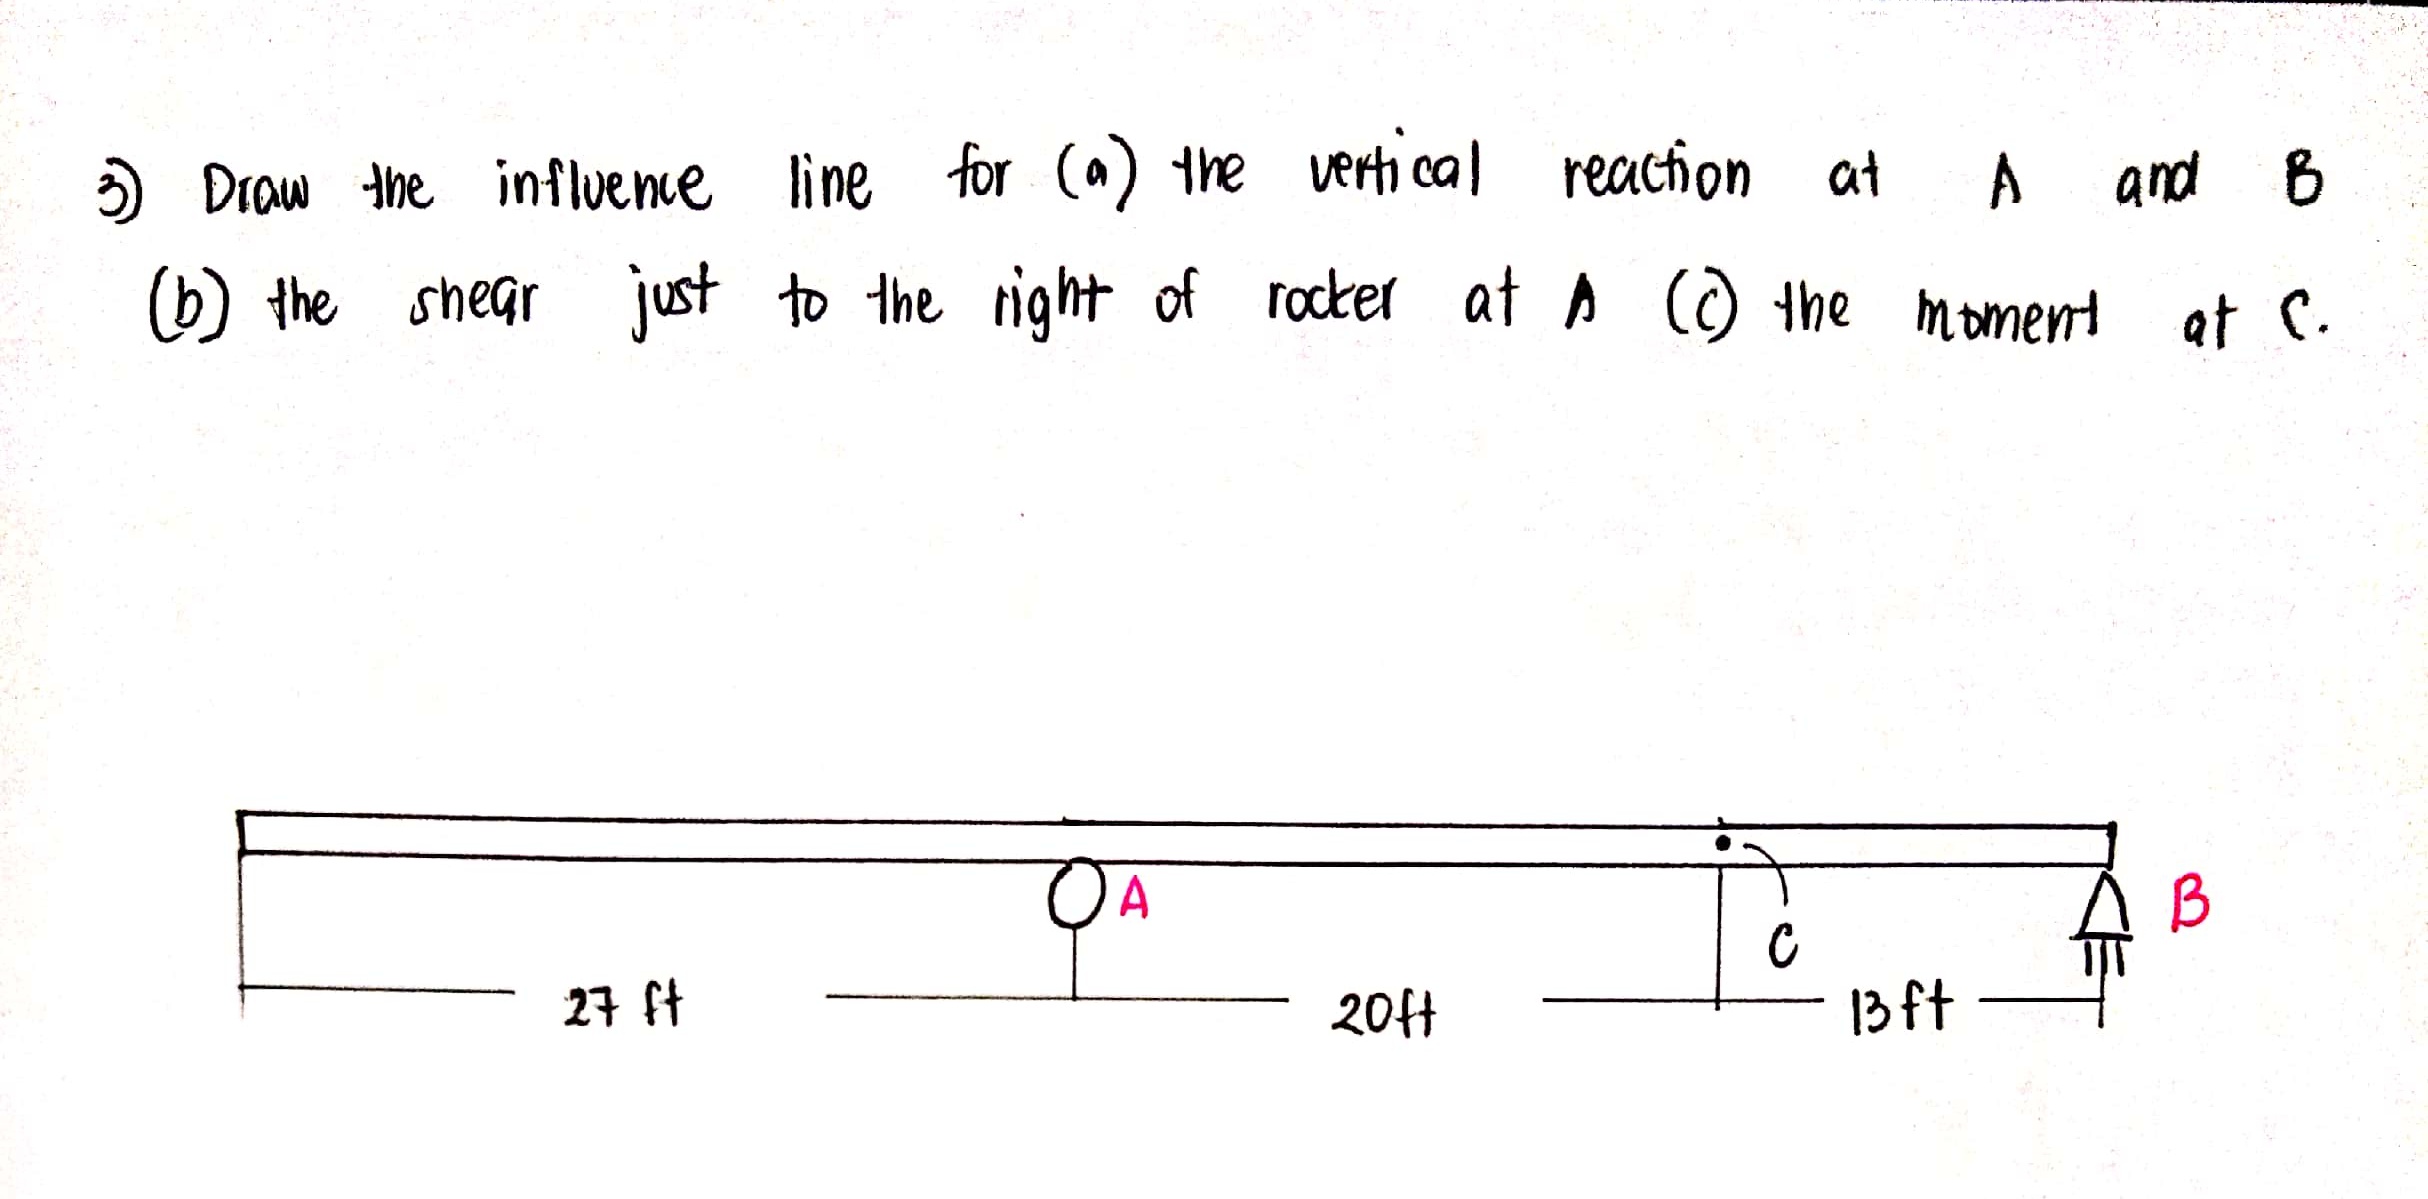 3) Draw the influence line for (a) the vertical reaction at A and B
(b) the shear just to the right of rocker at A (c) the moment at C.
A
B
C
27 ft
20ft
13 ft